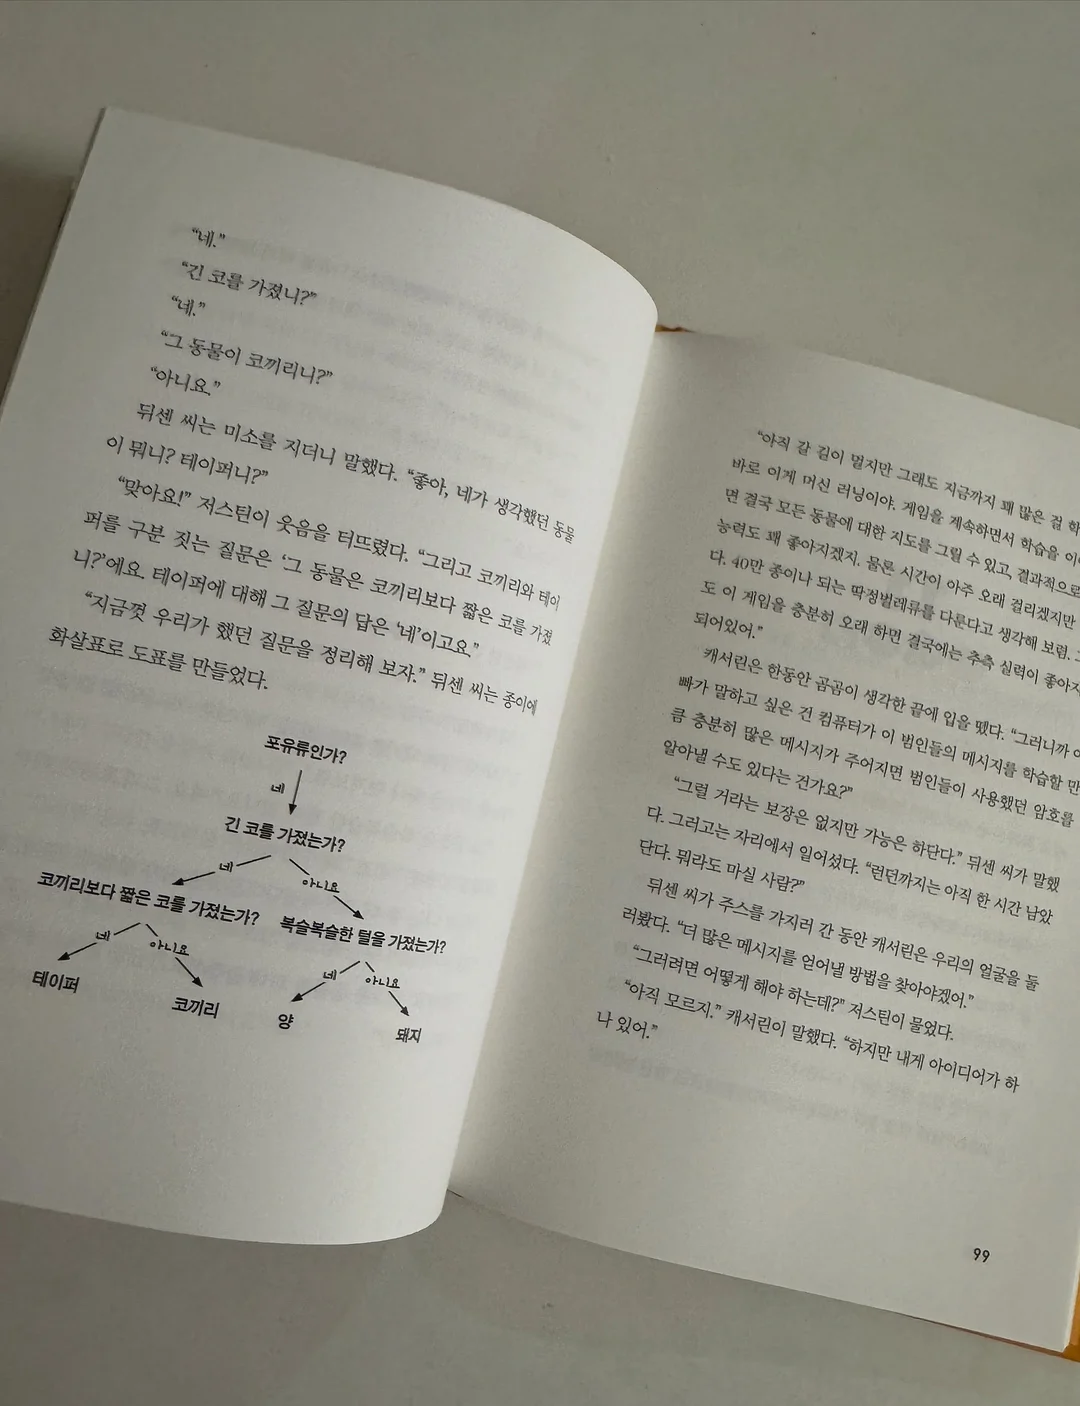 “네.”
“긴 코를 가졌니?”
“네.”
“그 동물이 코끼리니?”
“아니요.”
뒤센 씨는 미소를 지더니 말했다. “좋아, 네가 생각했던 동물
이 뭐니? 테이퍼니?”
“맞아요!” 저스틴이 웃음을 터뜨렸다. “그리고 코끼리와 테이
퍼를 구분 짓는 질문은 ‘그 동물은 코끼리보다 짧은 코를 가졌
니?’에요. 테이퍼에 대해 그 질문의 답은 ‘네’이고요.”
“지금껏 우리가 했던 질문을 정리해 보자.” 뒤센 씨는 종이에
화살표로 도표를 만들었다.
포유류인가?
네
긴 코를 가졌는가?
네 아니요
코끼리보다 짧은 코를 가졌는가? 복슬복슬한 털을 가졌는가?
네 아니요 네 아니요
테이퍼 코끼리 양 돼지
“아직 갈 길이 멀지만 그래도 지금까지 꽤 많은 걸
바로 이게 머신 러닝이야. 게임을 계속하면서 학습을
면 결국 모든 동물에 대한 지도를 그릴 수 있고, 결과적으로
능력도 꽤 좋아지겠지. 물론 시간이 아주 오래 걸리겠지만
다. 40만 종이나 되는 딱정벌레류를 다룬다고 생각해 보렴.
도 이 게임을 충분히 오래 하면 결국에는 추측 실력이
되어있어.”
캐서린은 한동안 곰곰이 생각한 끝에 입을 뗐다. “그러니까
빠가 말하고 싶은 건 컴퓨터가 이 범인들의 메시지를 학습할 만
큼 충분히 많은 메시지가 주어지면 범인들이 사용했던 암호를
알아낼 수도 있다는 건가요?”
“그럴 거라는 보장은 없지만 가능은 하단다.” 뒤센 씨가 말했
다. 그러고는 자리에서 일어섰다. “런던까지는 아직 한 시간 남았
단다. 뭐라도 마실 사람?”
뒤센 씨가 주스를 가지러 간 동안 캐서린은 우리의 얼굴을 둘
러봤다. “더 많은 메시지를 얻어낼 방법을 찾아야겠어.”
“그러려면 어떻게 해야 하는데?” 저스틴이 물었다.
“아직 모르지.” 캐서린이 말했다. “하지만 내게 아이디어가 하
나 있어.”
99